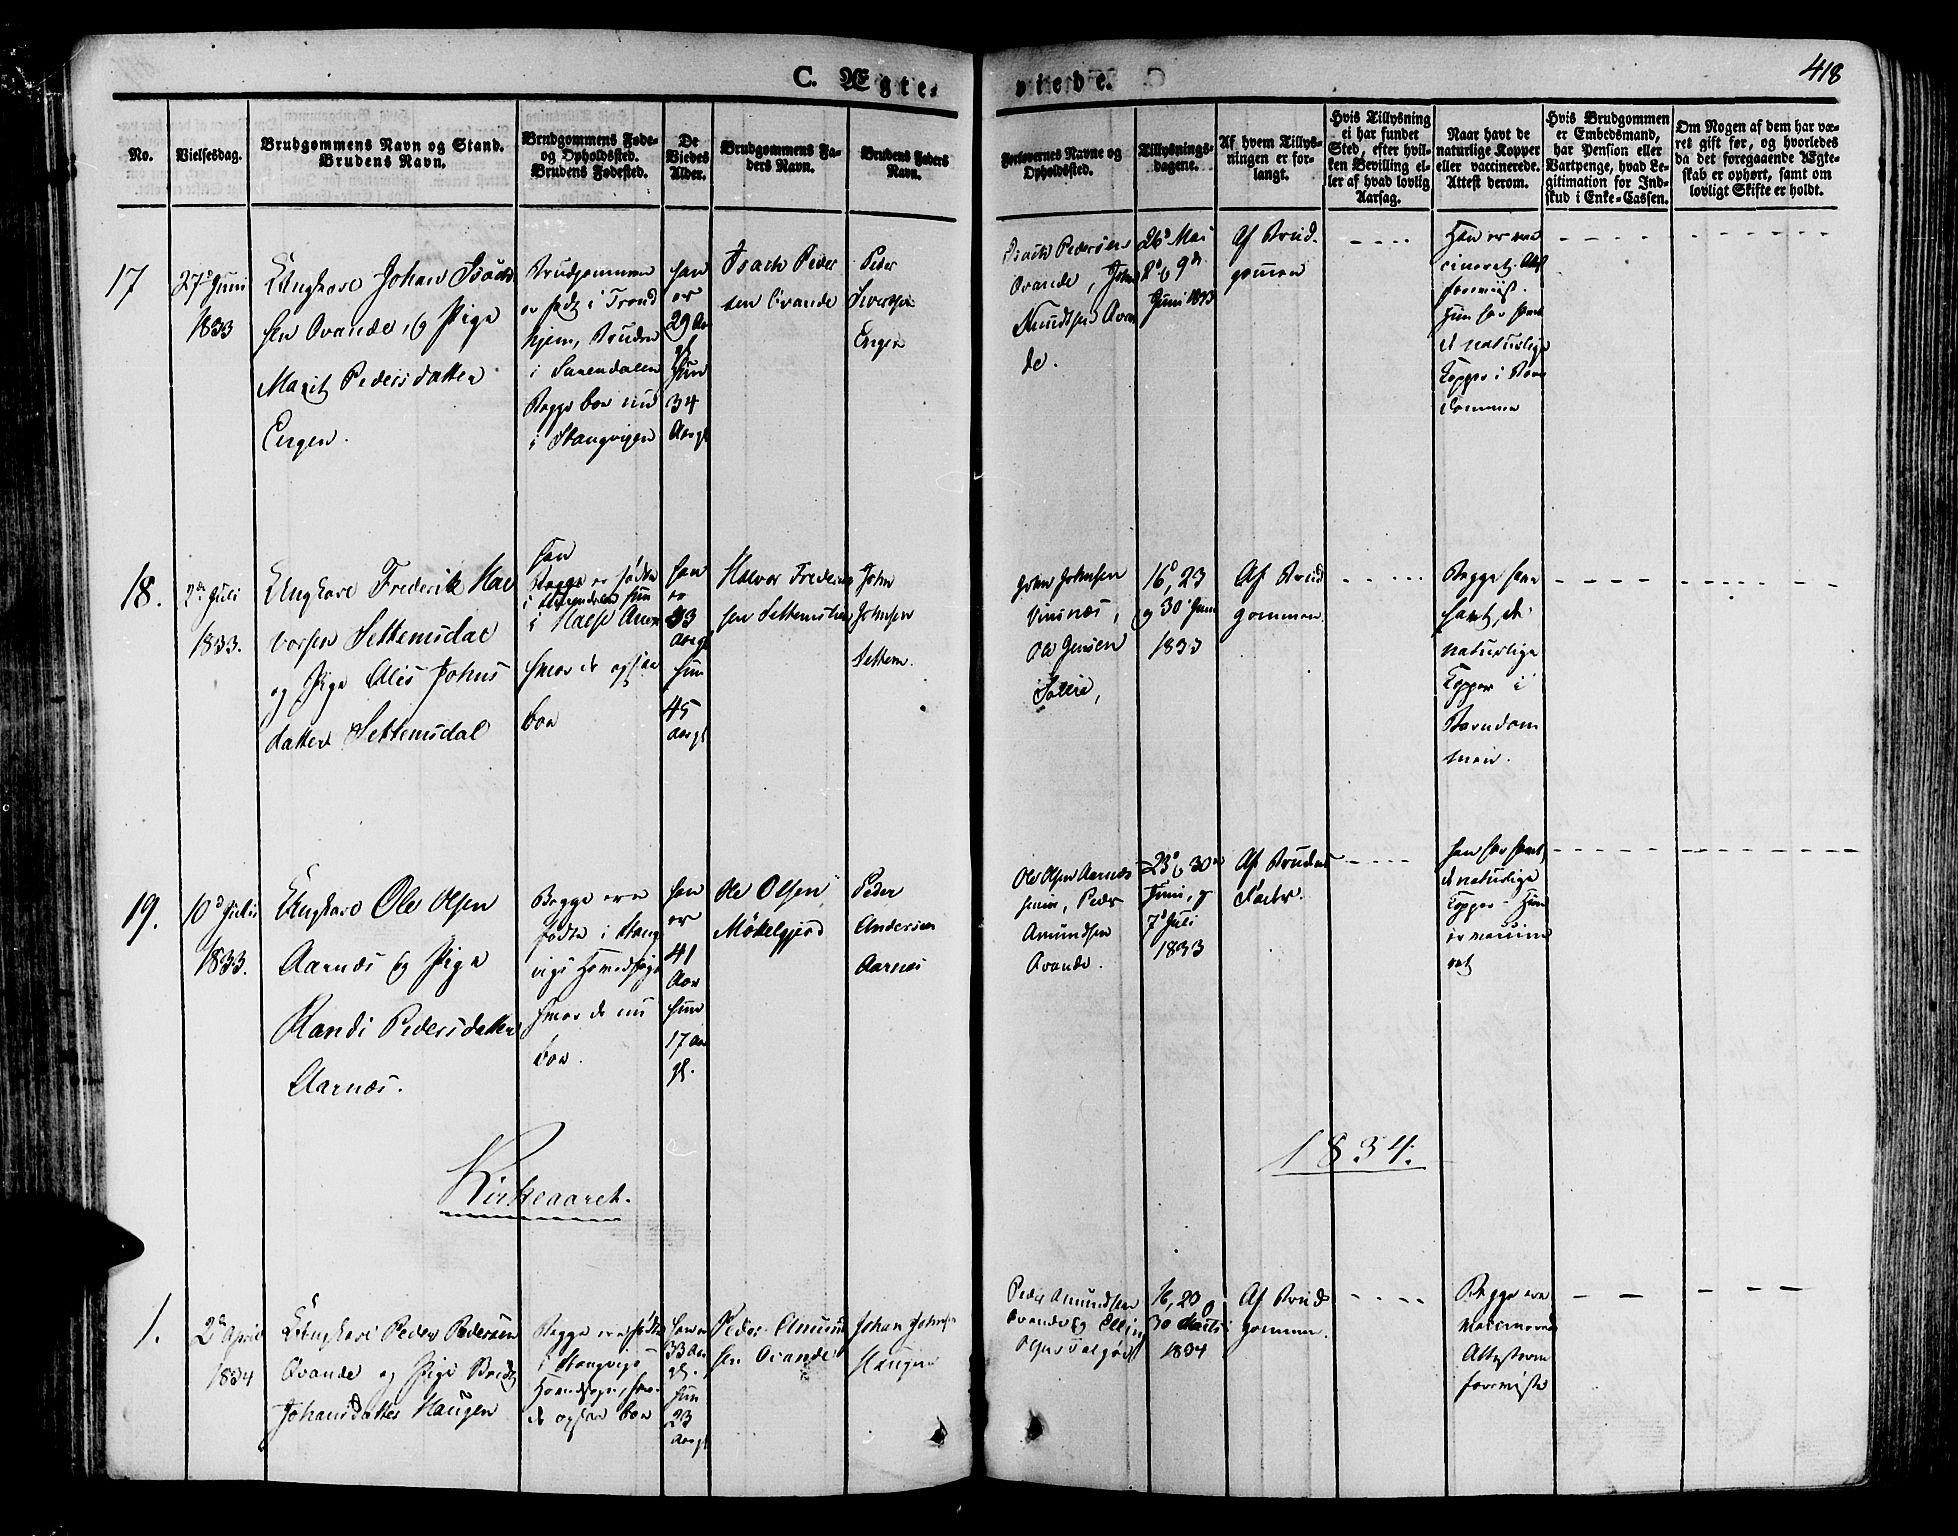 C. Ægte-
viede.
418
No.
Vielsesdag.
Brudgommens Navn og Stand.
Brudens Navn.
Brudgommens Føde-
og Opholdssted.
Brudens Fødested.
De
Viedes
Alder.
Brudgommens Fa-
ders Navn.
Brudens Faders
Navn.
Forlovernes Navne og
Opholdssted.
Tillysnings-
dagene.
Af hvem Tillys-
ningen er for-
langt.
Hvis Tillysning
ei har fundet
Sted, efter hvil-
ken Bevilling el-
ler af hvad lovlig
Aarsag.
Naar havt de
naturlige Kopper
eller vaccinerede.
Attest derom.
Hvis Brudgommen
er Embedsmand,
har Pension eller
Vartpenge, hvad Le-
gitimation for Ind-
skud i Enke-Cassen.
Om Nogen af dem har væ-
ret gift før, og hvorledes
da det foregaaende Ægte-
skab er ophørt, samt om
lovligt Skifte er holdt.
17
27de Juni
1833
Ungkarl Johan Isach
sen Qvande, og Pige
Marit Pedersdatter
Engen.
Brudgommen
er født i Trond
hjem, Bruden
i Surendalen
Begge boe nu
i Stangvigen
han
er
29 Aar
gl
hun
34
Aargl
Isach Peder
sen Qvande
Peder
Iversen
Engen
Isach Pedersen
Qvande, John
Knudtsen Qvan
de.
26de Mai
2de og 9de
Juni 1833
Af Brud
gommen
Han er vac
cineret. Att
foreviist.
Hun har havt
de naturlige
Kopper i Barn
dommen
18.
2den Juli
1833.
Ungkarl Frederik Hal
vorsen Settemsdal
og Pige Alis Johns
datter Settemsdal
han
Begge er fødte
i Surendalen hun
i Halse
hvor de ogsaa
boe
han
er
33
Aargl
hun
45
Aargl
Halvor Frederik
sen Settemsdal
John
Johnsen
Settem.
John Johnsen
Ole Jensen
Sollie,
16de, 23
og 30 Juni
1833
Af Brud
gommen
Begge have
havt de
naturlige
Kopper i
Barndom
men.
19.
10de Juli
1833.
Ungkarl Ole Olsen
Aarnæs og Pige
Randi Pedersdatter
Aarnæs.
Begge ere
fødte i Stang
vigs Hovedsogn
hvor de nu
boe.
han
er
41
Aar
hun
17 Aar
gl.
Ole Olsen
Møkelgjerd
Peder
Andersen
Aarnæs
Ole Olsen Aarnæs
Peder
Amundsen
Qvande.
23de og 30te
Juni, og
7de Juli
1833
Af Brudens
Fader.
han har havt
de naturlige
Kopper - Hun
er vaccine
ret
Kirkeaaret.
1834.
1.
2den April
1834
Ungkarl Peder Pedersen
Qvande og Pige Brit
Johansdatter Haugen
Begge ere fødte
i Stangvigs
Hovedsogn, hvor
de ogsaa boe
han er
33 Aar
gl.
hun
23
Aargl
Peder Amund
sen Qvande
Johan Johnsen
Haugen
Peder Amundsen
Qvande og
16, 23
30 Marts
1834
Af Brud
gommen.
Begge ere
vaccinerede
Attesterne
foreviste